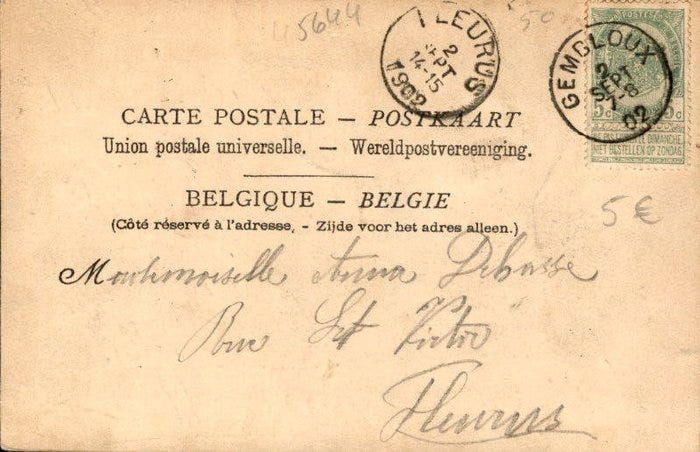 5644
50
FLEURUS
2
SEPT
14-15
1902
GEMBLOUX
2
SEPT
7-8
02
POSTES
5c
5c
NE PAS LIVRER LE DIMANCHE
NIET BESTELLEN OP ZONDAG
CARTE POSTALE — POSTKAART
Union postale universelle. — Wereldpostvereeniging.
BELGIQUE — BELGIE
(Côté réservé à l'adresse, - Zijde voor het adres alleen.)
5 €
Mademoiselle Anna Debasse
Rue St Victor
Fleurus